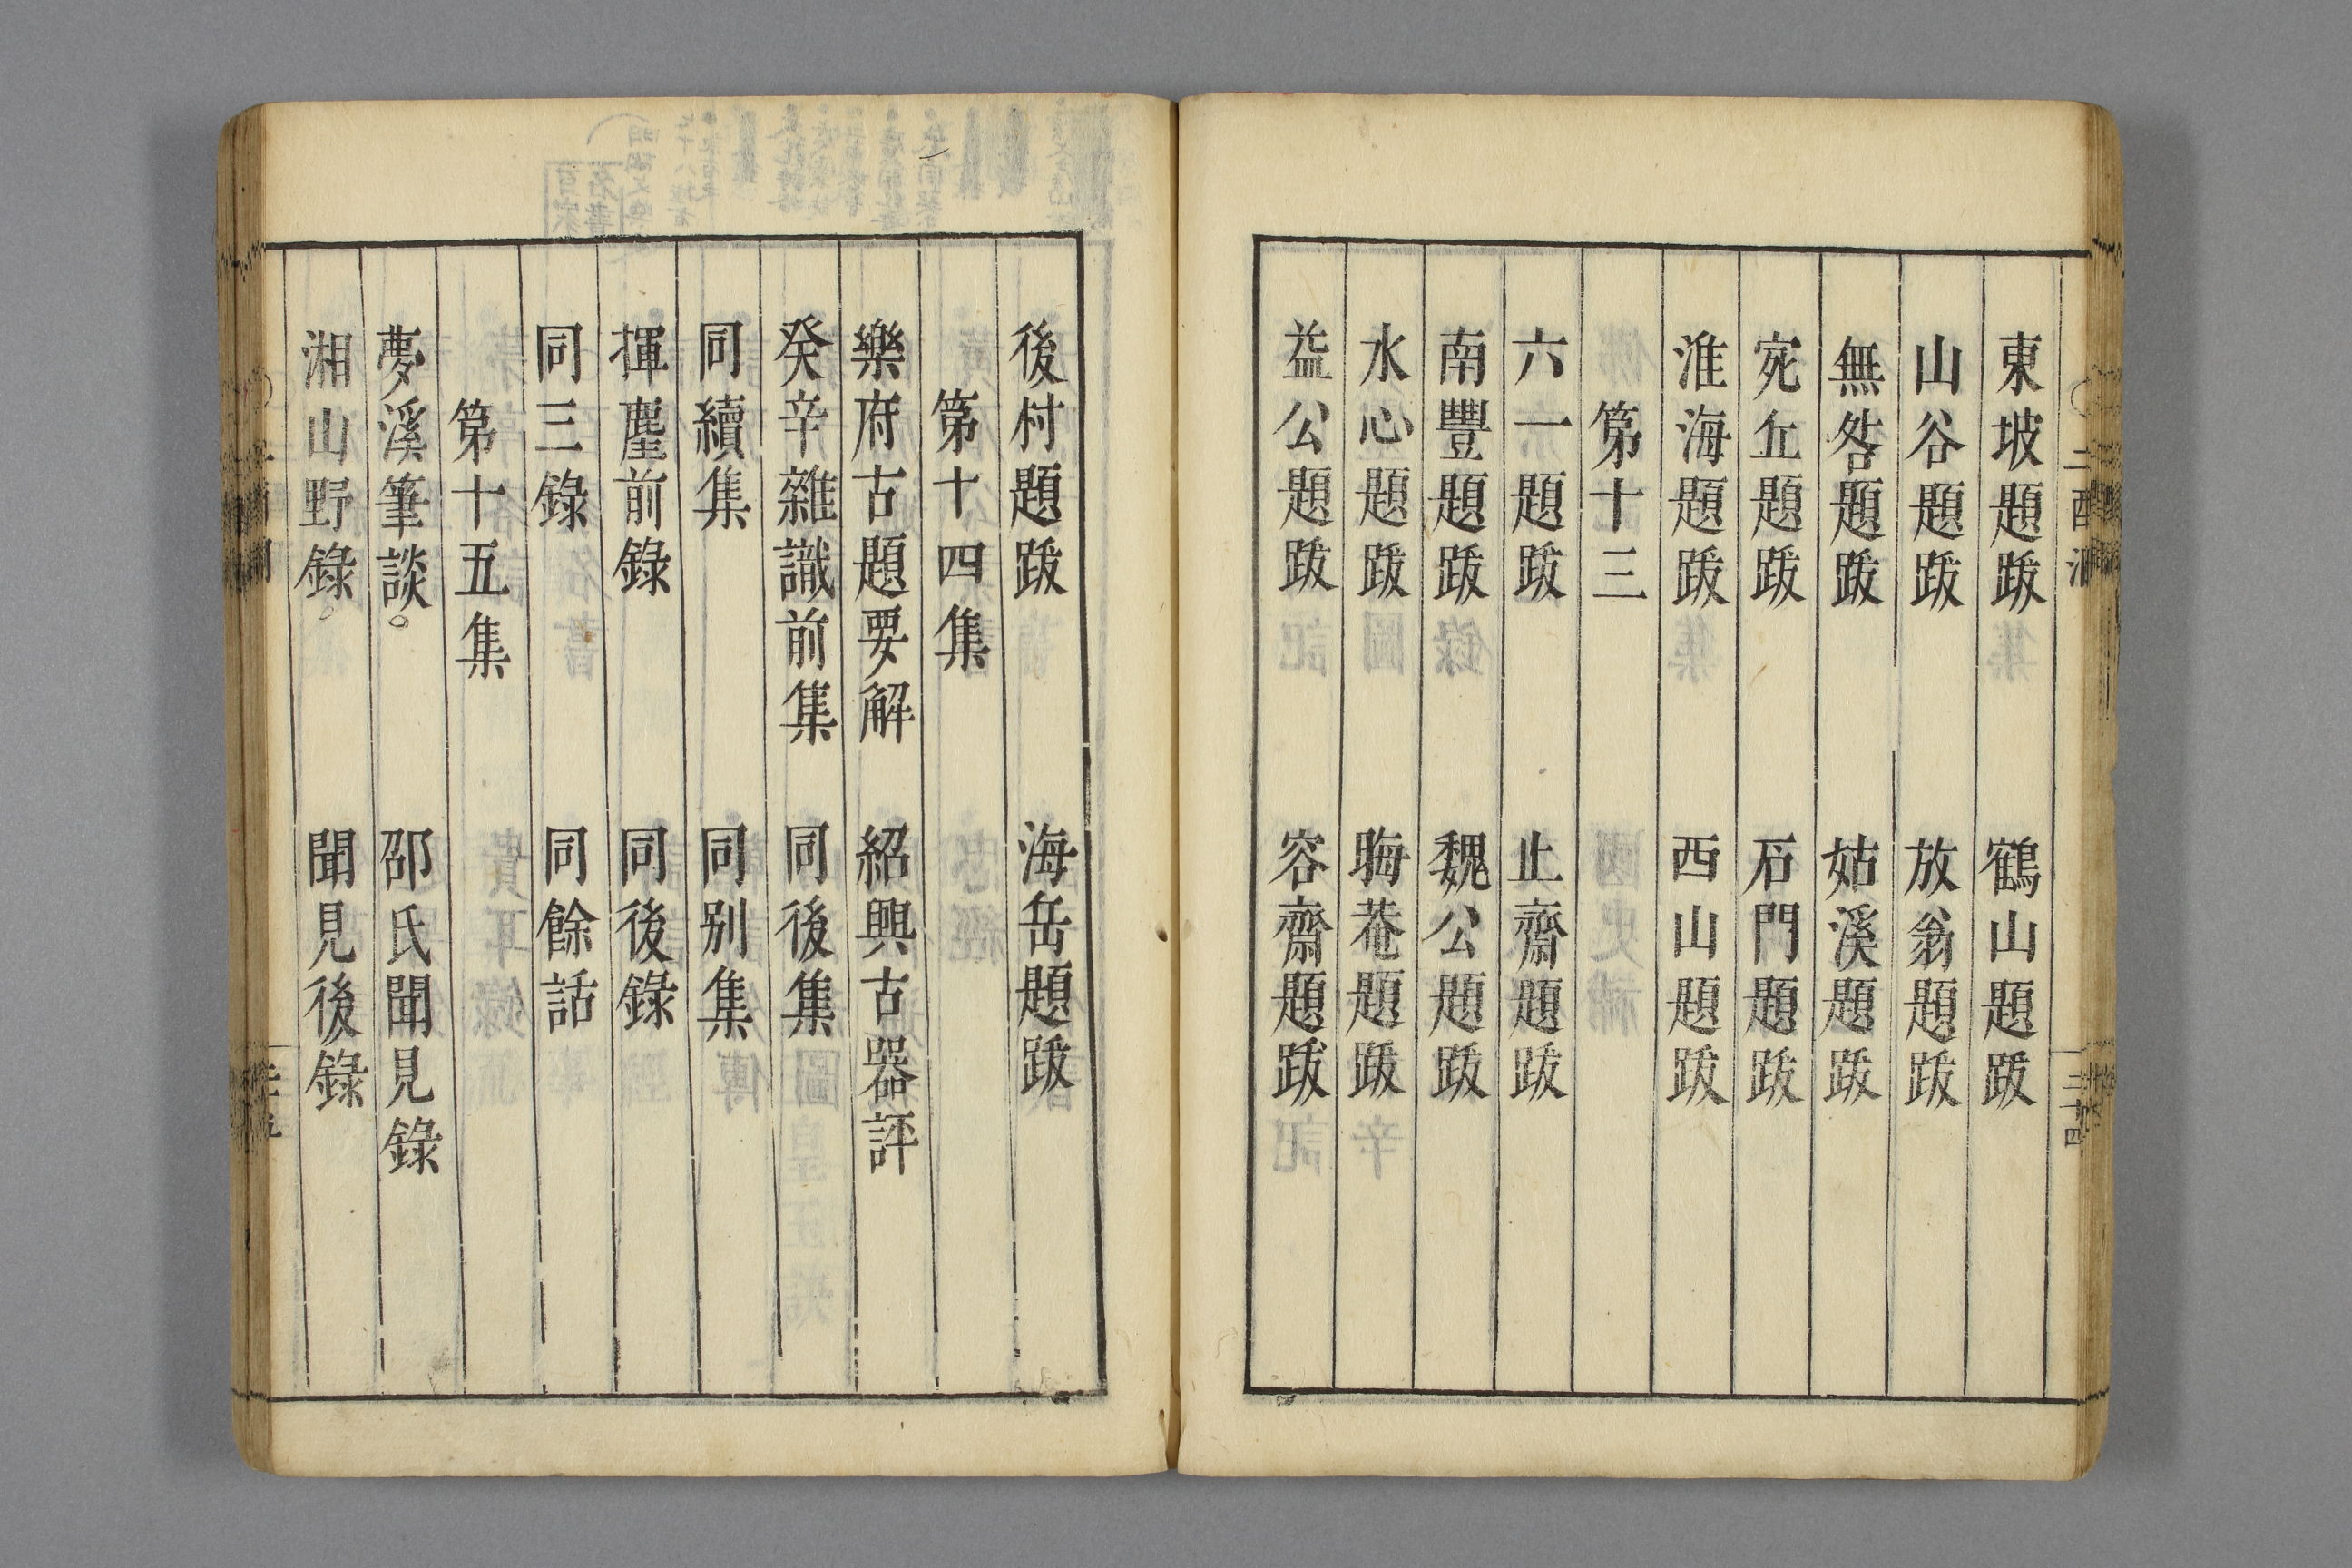 東坡題跋　鶴山題跋
山谷題跋　放翁題跋
無咎題跋　姑溪題跋
宛丘題跋　石門題跋
淮海題跋　西山題跋
第十三
六一題跋　止齋題跋
南豐題跋　魏公題跋
水心題跋　晦菴題跋
益公題跋　容齋題跋
後村題跋　海岳題跋
第十四集
樂府古題要解　紹興古器評
癸辛雜識前集　同後集
同續集　同別集
揮麈前錄　同後錄
同三錄　同餘話
第十五集
夢溪筆談。　邵氏聞見錄
湘山野錄。　聞見後錄